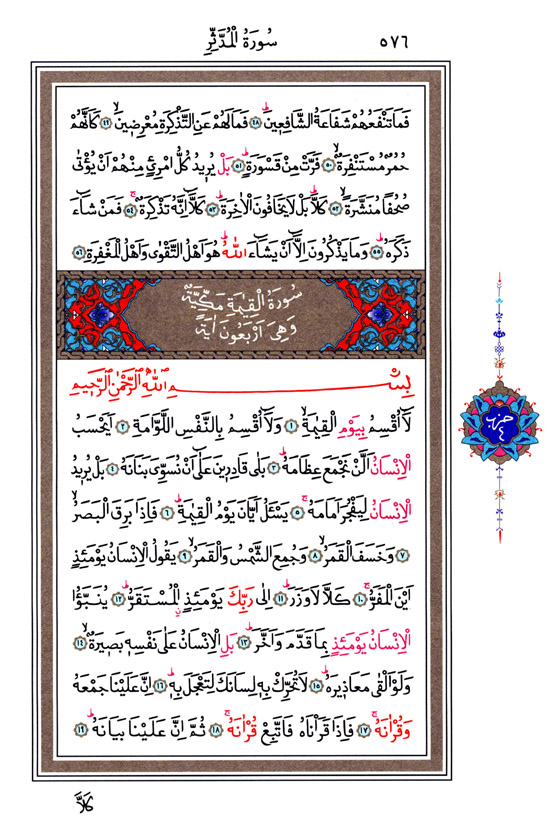 ٥٧٦
سُورَةُ الْمُدَّثِّرِ
فَمَا تَنْفَعُهُمْ شَفَاعَةُ الشَّافِع۪ينَۜ ﴿٤٨﴾ فَمَا لَهُمْ عَنِ التَّذْكِرَةِ مُعْرِض۪ينَۙ ﴿٤٩﴾ كَاَنَّهُمْ
حُمُرٌ مُسْتَنْفِرَةٌۙ ﴿٥٠﴾ فَرَّتْ مِنْ قَسْوَرَةٍۜ ﴿٥١﴾ بَلْ يُر۪يدُ كُلُّ امْرِئٍ مِنْهُمْ اَنْ يُؤْتٰى
صُحُفًا مُنَشَّرَةًۙ ﴿٥٢﴾ كَلَّاۜ بَلْ لَا يَخَافُونَ الْاٰخِرَةَۜ ﴿٥٣﴾ كَلَّٓا اِنَّهُ تَذْكِرَةٌۚ ﴿٥٤﴾ فَمَنْ شَٓاءَ
ذَكَرَهُۜ ﴿٥٥﴾ وَمَا يَذْكُرُونَ اِلَّٓا اَنْ يَشَٓاءَ اللّٰهُۜ هُوَ اَهْلُ التَّقْوٰى وَاَهْلُ الْمَغْفِرَةِ ﴿٥٦﴾
سُورَةُ الْقِيٰمَةِ مَكِّيَّةٌ
وَهِىَ اَرْبَعُونَ اٰيَةً
بِسْمِ اللّٰهِ الرَّحْمٰنِ الرَّح۪يمِ
لَٓا اُقْسِمُ بِيَوْمِ الْقِيٰمَةِۙ ﴿١﴾ وَلَٓا اُقْسِمُ بِالنَّفْسِ اللَّوَّامَةِ ﴿٢﴾ اَيَحْسَبُ
الْاِنْسَانُ اَلَّنْ نَجْمَعَ عِظَامَهُۜ ﴿٣﴾ بَلٰى قَادِر۪ينَ عَلٰٓى اَنْ نُسَوِّىَ بَنَانَهُ ﴿٤﴾ بَلْ يُر۪يدُ
الْاِنْسَانُ لِيَفْجُرَ اَمَامَهُۚ ﴿٥﴾ يَسْـَٔلُ اَيَّانَ يَوْمُ الْقِيٰمَةِۜ ﴿٦﴾ فَاِذَا بَرِقَ الْبَصَرُۙ
﴿٧﴾ وَخَسَفَ الْقَمَرُۙ ﴿٨﴾ وَجُمِعَ الشَّمْسُ وَالْقَمَرُۙ ﴿٩﴾ يَقُولُ الْاِنْسَانُ يَوْمَئِذٍ
اَيْنَ الْمَفَرُّۚ ﴿١٠﴾ كَلَّا لَا وَزَرَۜ ﴿١١﴾ اِلٰى رَبِّكَ يَوْمَئِذٍۨ الْمُسْتَقَرُّۜ ﴿١٢﴾ يُنَبَّؤُا
الْاِنْسَانُ يَوْمَئِذٍ بِمَا قَدَّمَ وَاَخَّرَۜ ﴿١٣﴾ بَلِ الْاِنْسَانُ عَلٰى نَفْسِه۪ بَص۪يرَةٌۙ ﴿١٤﴾
وَلَوْ اَلْقٰى مَعَاذ۪يرَهُۜ ﴿١٥﴾ لَا تُحَرِّكْ بِه۪ لِسَانَكَ لِتَعْجَلَ بِه۪ۜ ﴿١٦﴾ اِنَّ عَلَيْنَا جَمْعَهُ
وَقُرْاٰنَهُۚ ﴿١٧﴾ فَاِذَا قَرَأْنَاهُ فَاتَّبِعْ قُرْاٰنَهُۚ ﴿١٨﴾ ثُمَّ اِنَّ عَلَيْنَا بَيَانَهُۜ ﴿١٩﴾
حزب
٤
كَلَّا